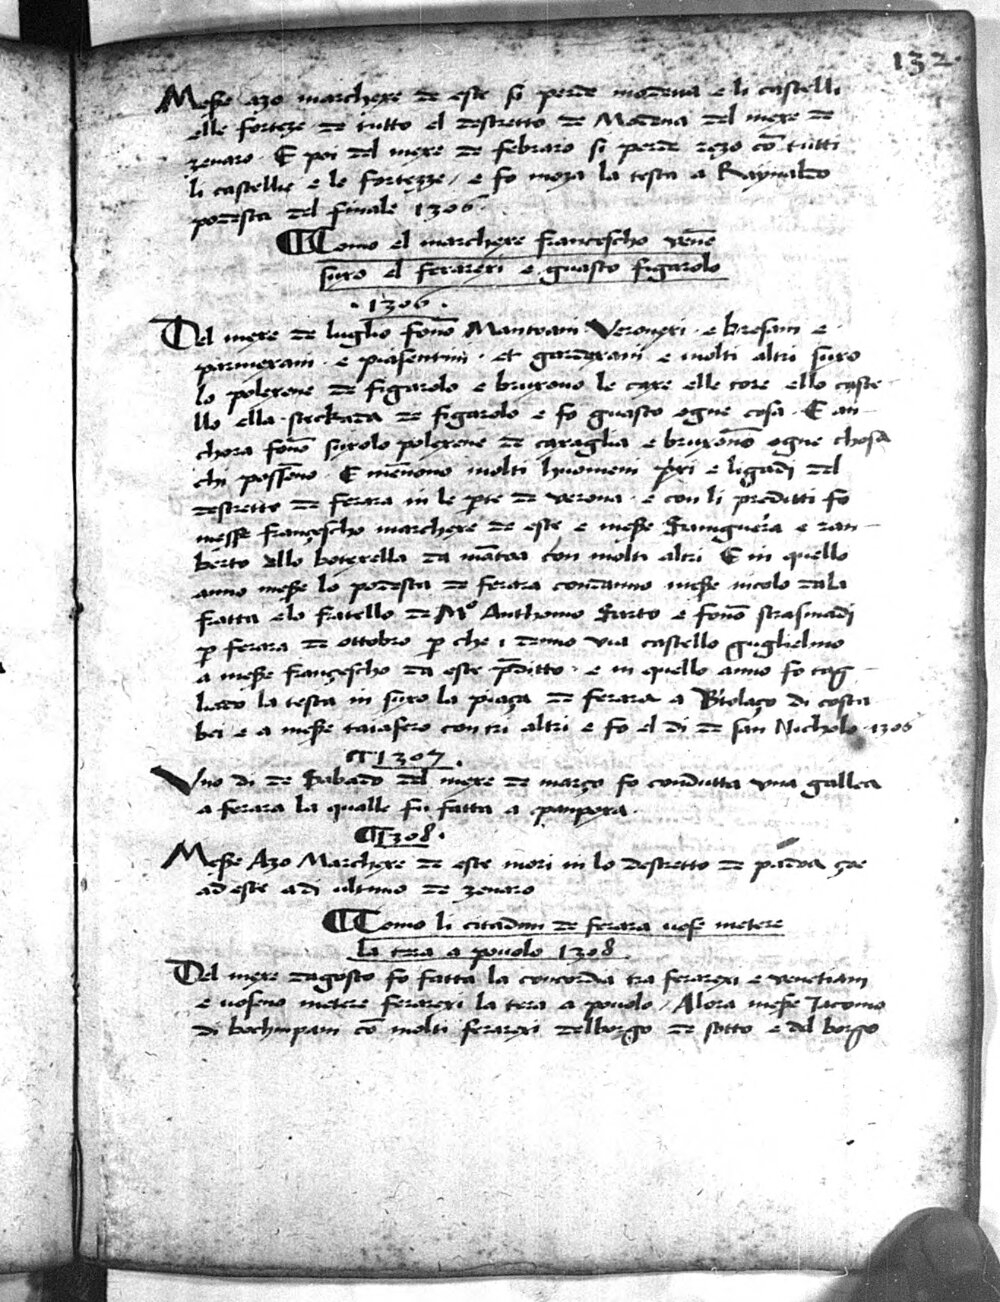 132
Messe azo marchexe de este si perde modena e li castelli
elle forteze de tutto el destretto de Modena del mexe de
zenaro. E poi del mexe de febraro si perde rezo cō tutti
li castelle e le fortezze / e fo moza la testa a Raynaldo
podesta del finale 1306
Como el marchexe francescho vene
suxo el ferarexi e guasto figarolo
. 1306 .
Del mexe de luglio fonō Mantoani Veronexi . e bresani e
parmexani . e piasentini . et gardexani e molti altri suxo
lo polexene de figarolo e bruxono le caxe elle tore ello caste
llo ella steckada de figarolo e fo guasto ogne cosa . E an-
chora fonō suxolo polexene de caraglia e bruxonō ogne chosa
chi possēno . E menono molti huomeni pxi e ligadi del
destretto de ferara in le pte de verona . e con li preditti fo
messe francescho marchexe de este e messe e ran-
berto ello boterella da mātoa con molti altri E in quello
anno messe lo podesta de ferara condanno messe nicolo dala
fratta elo fratello de Mo Anthonio Sarto e fonō strasinadi
p ferara de ottobro p che i denno via castello guglielmo
a messe francescho da este pditto . e in quello anno fo tag-
liado la testa in suxo la piaza de ferara a Biolaço di costa
bei e a messe taiafero con tri altri e fo el di de san Nicholo . 1306
1307 .
Uno di de Sabado del mexe de março fo condutta una gallea
a ferara la qualle fu fatta a panpoxa .
1308 .
Messe Azo Marchexe de este mori in lo destretto de padoa çoe
ad este adi ultimo de zenaro
Como li citadini de ferara uose metere
la tera a pouolo 1308
Del mexe dagosto fo fatta la concordia tra ferarexi e venetiani
e uoseno metere ferarexi la tera a pouolo / Alora messe Jacomo
di bochinpani cō molti ferarexi delborgo de sotto e del borgo